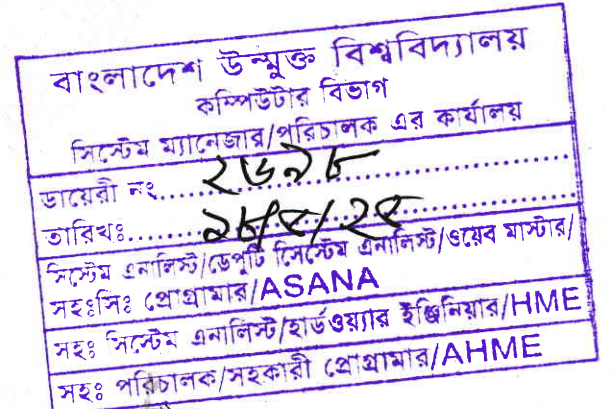 বাংলাদেশ উন্মুক্ত বিশ্ববিদ্যালয়
কম্পিউটার বিভাগ
সিস্টেম ম্যানেজার/পরিচালক এর কার্যালয়
ডায়েরী নং..... ২৬৯৮
তারিখঃ..... ২৮/৫/২৫
সিস্টেম এনালিস্ট/ডেপুটি সিস্টেম এনালিস্ট/ওয়েব মাস্টার/
সহঃসিঃ প্রোগ্রামার/ASANA
সহঃ সিস্টেম এনালিস্ট/হার্ডওয়্যার ইঞ্জিনিয়ার/HME
সহঃ পরিচালক/সহকারী প্রোগ্রামার/AHME